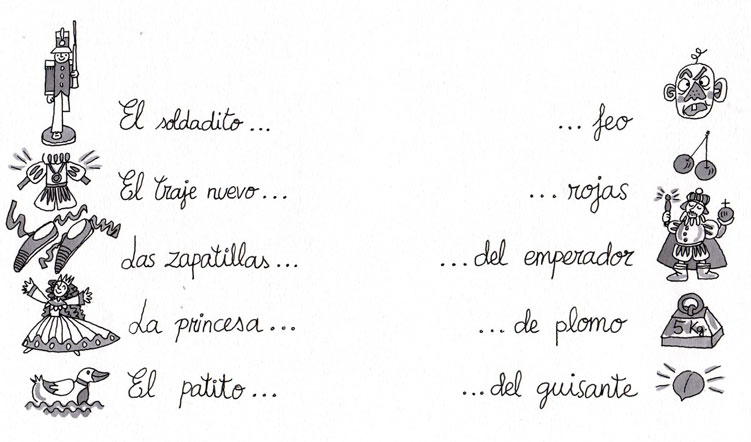 El soldadito... ...feo
El traje nuevo... ...rojas
Las zapatillas... ...del emperador
La princesa... ...de plomo
5 Kg
El patito... ...del guisante